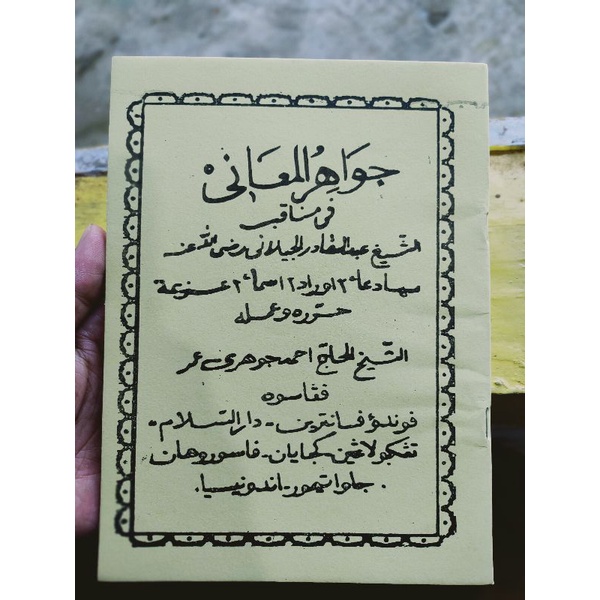 جَوَاهِرُ الْمَعَانِىْ
فى مناقب
الشّيخ عبد القادر الجيلانى رضى اللّه عنه
دعاء٢ اوراد٢ اسماء٢ عزيمة
حرّره وعمله
الشّيخ الحاجّ احمد جوهرى عمر
ڤڠاسوه
ڤوندوق ڤسانترين - دار السّلام -
تڠكولاڠين - كجايان - ڤاسوروهان
جاوا تيمور - اندونيسيا.